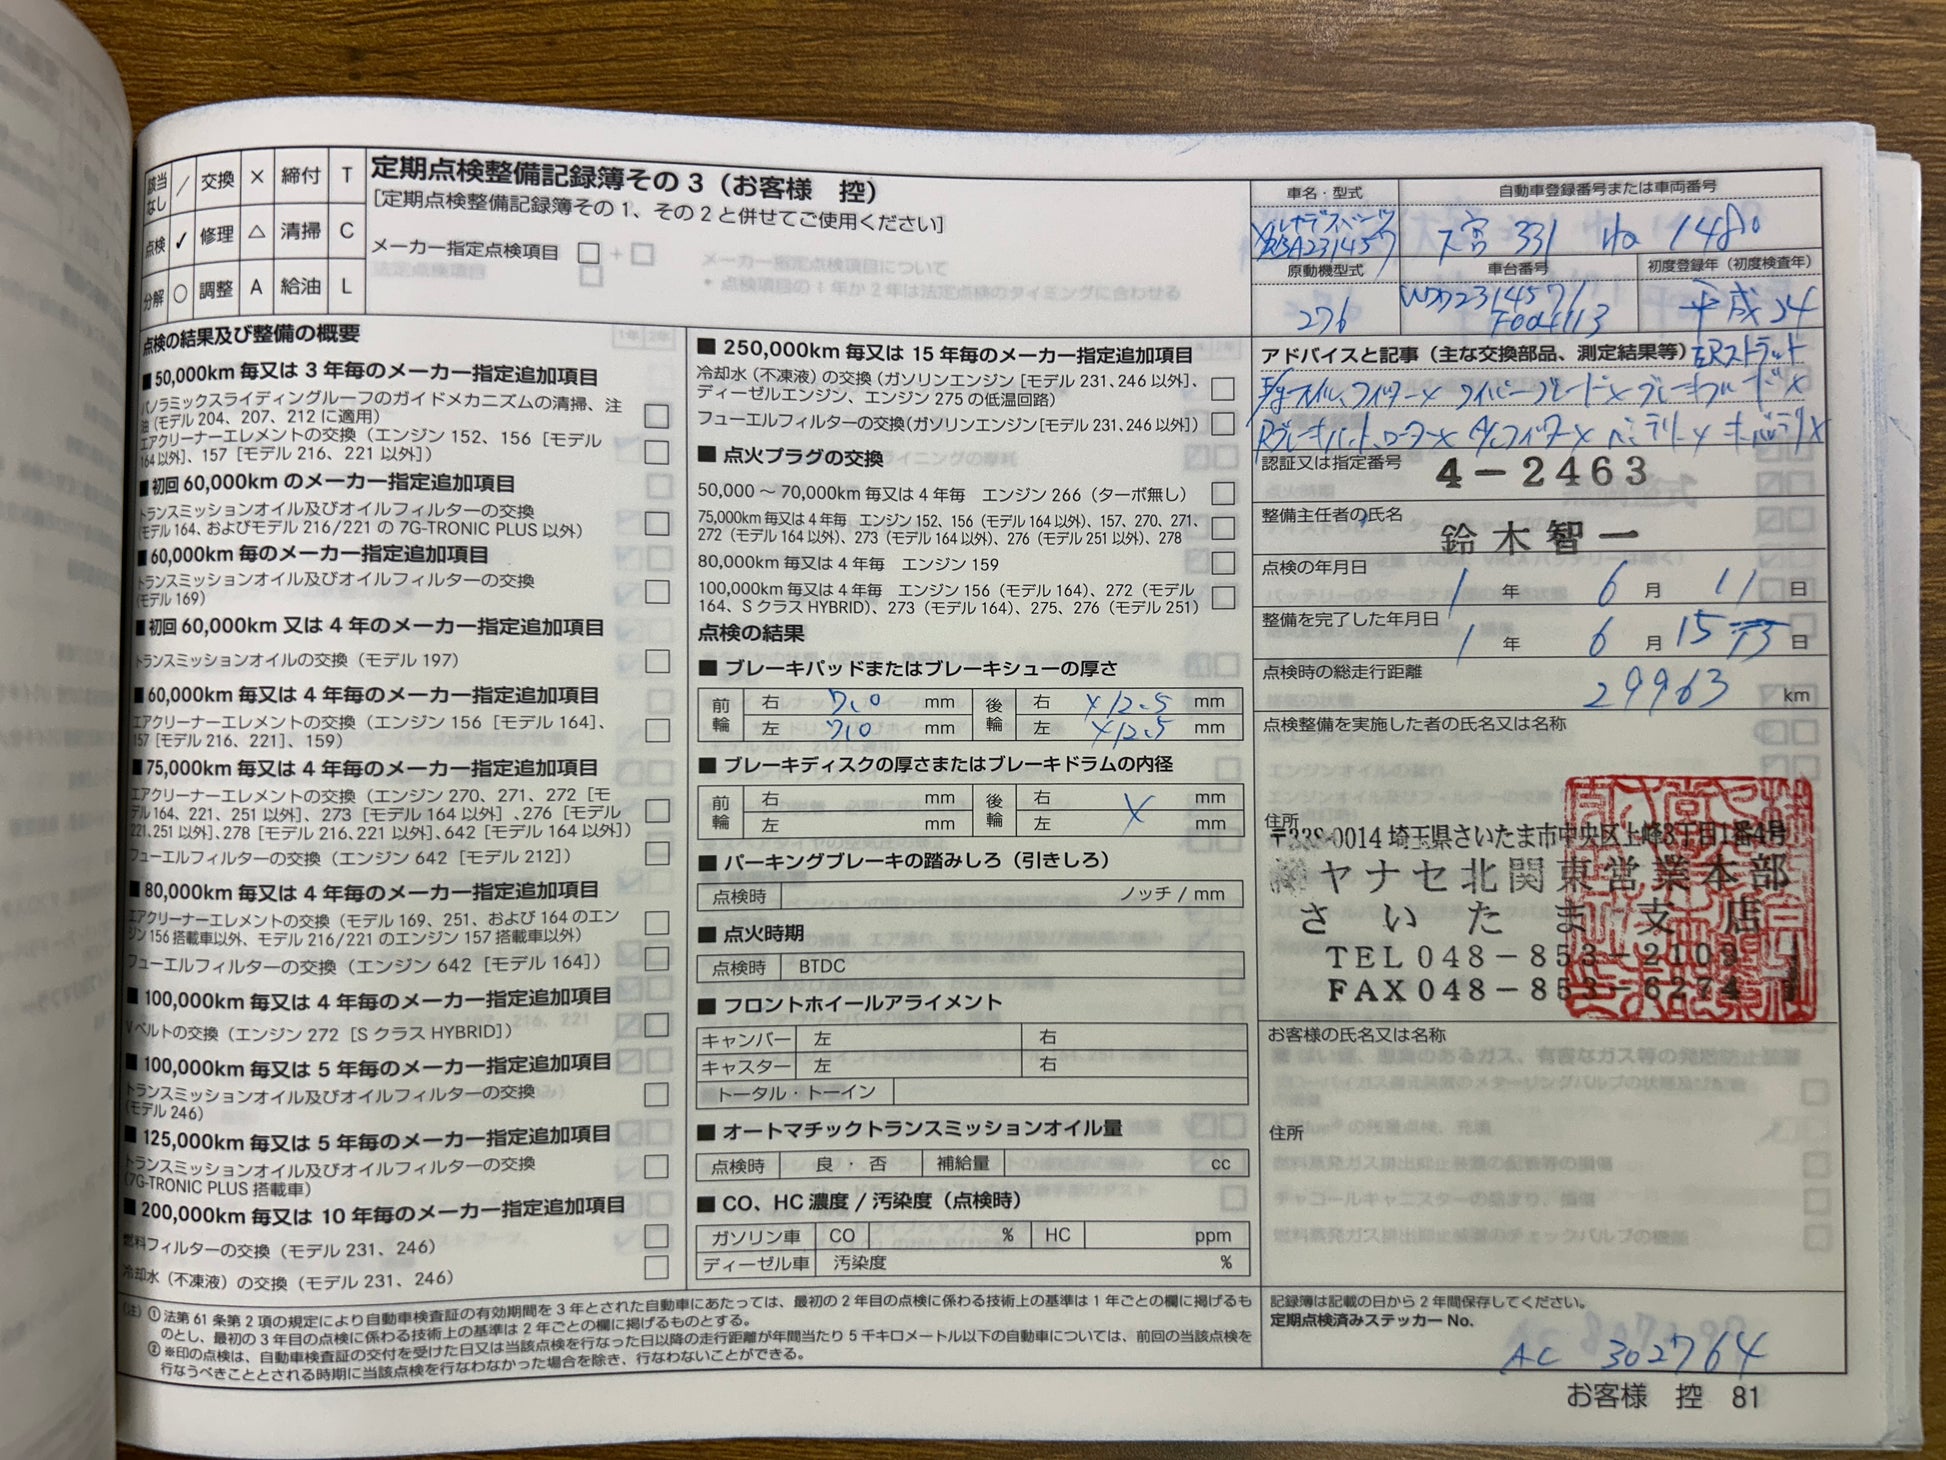 該当なし / 交換 × 締付 T
点検 ✓ 修理 △ 清掃 C
分解 ○ 調整 A 給油 L
定期点検整備記録簿その3（お客様 控）
[定期点検整備記録簿その1、その2と併せてご使用ください]
メーカー指定点検項目 □
点検の結果及び整備の概要
■50,000km毎又は3年毎のメーカー指定追加項目
パノラミックスライディングルーフのガイドメカニズムの清掃、注油（モデル204、207、212に適用）
エアクリーナーエレメントの交換（エンジン152、156［モデル
164以外］、157［モデル216、221以外］）
■初回60,000kmのメーカー指定追加項目
トランスミッションオイル及びオイルフィルターの交換
（モデル164、およびモデル216/221の7G-TRONIC PLUS以外）
■60,000km毎のメーカー指定追加項目
トランスミッションオイル及びオイルフィルターの交換
（モデル169）
■初回60,000km又は4年のメーカー指定追加項目
トランスミッションオイルの交換（モデル197）
■60,000km毎又は4年毎のメーカー指定追加項目
エアクリーナーエレメントの交換（エンジン156［モデル164］、
157［モデル216、221］、159）
■75,000km毎又は4年毎のメーカー指定追加項目
エアクリーナーエレメントの交換（エンジン270、271、272［モ
デル164、221、251以外］、273［モデル164以外］、276［モデル
221､251以外］､278［モデル216､221以外］､642［モデル164以外］）
フューエルフィルターの交換（エンジン642［モデル212］）
■80,000km毎又は4年毎のメーカー指定追加項目
エアクリーナーエレメントの交換（モデル169、251、および164のエン
ジン156搭載車以外、モデル216/221のエンジン157搭載車以外）
フューエルフィルターの交換（エンジン642［モデル164］）
■100,000km毎又は4年毎のメーカー指定追加項目
Vベルトの交換（エンジン272［SクラスHYBRID］）
■100,000km毎又は5年毎のメーカー指定追加項目
トランスミッションオイル及びオイルフィルターの交換
（モデル246）
■125,000km毎又は5年毎のメーカー指定追加項目
トランスミッションオイル及びオイルフィルターの交換
（7G-TRONIC PLUS搭載車）
■200,000km毎又は10年毎のメーカー指定追加項目
燃料フィルターの交換（モデル231、246）
冷却水（不凍液）の交換（モデル231、246）
■250,000km毎又は15年毎のメーカー指定追加項目
冷却水（不凍液）の交換（ガソリンエンジン［モデル231､246以外］、
ディーゼルエンジン、エンジン275の低温回路）
フューエルフィルターの交換（ガソリンエンジン［モデル231､246以外］）
■点火プラグの交換
50,000～70,000km毎又は4年毎 エンジン266（ターボ無し）
75,000km毎又は4年毎 エンジン152、156（モデル164以外）、157、270、271、
272（モデル164以外）、273（モデル164以外）、276（モデル251以外）、278
80,000km毎又は4年毎 エンジン159
100,000km毎又は4年毎 エンジン156（モデル164）、272（モデル
164、SクラスHYBRID）、273（モデル164）、275、276（モデル251）
点検の結果
■ブレーキパッドまたはブレーキシューの厚さ
前輪 右 7.0 mm 後輪 右 ×12.5 mm
左 7.0 mm 左 ×12.5 mm
■ブレーキディスクの厚さまたはブレーキドラムの内径
前輪 右 mm 後輪 右 × mm
左 mm 左 mm
■パーキングブレーキの踏みしろ（引きしろ）
点検時 ノッチ/mm
■点火時期
点検時 BTDC
■フロントホイールアライメント
キャンバー 左 右
キャスター 左 右
トータル・トーイン
■オートマチックトランスミッションオイル量
点検時 良・否 補給量 cc
■CO、HC濃度/汚染度（点検時）
ガソリン車 CO % HC ppm
ディーゼル車 汚染度 %
車名・型式 自動車登録番号または車両番号
大宮 331 1480
原動機型式 車台番号 初度登録年（初度検査年）
276 WDD2314571F004113 平成24
アドバイスと記事（主な交換部品、測定結果等）
ワイパーブレード×
認証又は指定番号 4-2463
整備主任者の氏名 鈴木智一
点検の年月日
1 年 6 月 11 日
整備を完了した年月日
1 年 6 月 15 日
点検時の総走行距離
29963 km
点検整備を実施した者の氏名又は名称
住所
〒338-0014 埼玉県さいたま市中央区上峰3丁目1番4号
ヤナセ北関東営業本部
さいたま支店
TEL 048-853-2109
FAX 048-853-6274
お客様の氏名又は名称
住所
記録簿は記載の日から2年間保存してください。
定期点検済みステッカーNo.
AC 302764
（注）①法第61条第2項の規定により自動車検査証の有効期間を3年とされた自動車にあたっては、最初の2年目の点検に係わる技術上の基準は1年ごとの欄に掲げるも
のとし、最初の3年目の点検に係わる技術上の基準は2年ごとの欄に掲げるものとする。
②※印の点検は、自動車検査証の交付を受けた日又は当該点検を行なった日以降の走行距離が年間当たり5千キロメートル以下の自動車については、前回の当該点検を
行なうべきこととされる時期に当該点検を行なわなかった場合を除き、行なわないことができる。
お客様 控 81